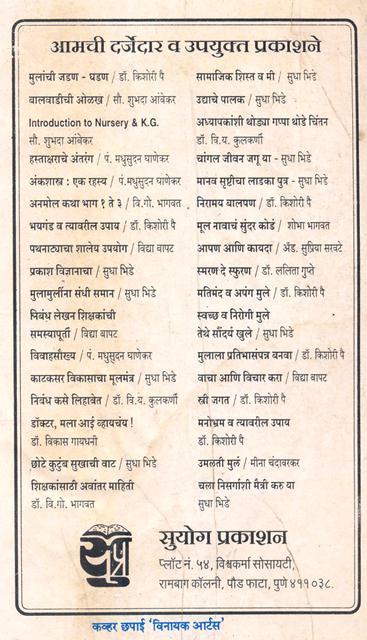 आमची दर्जेदार व उपयुक्त प्रकाशने
मुलांची जडण - घडण / डॉ. किशोरी पै
बालवाडीची ओळख / सौ. शुभदा आंबेकर
Introduction to Nursery & K.G.
सौ. शुभदा आंबेकर
हस्ताक्षराचे अंतरंग / पं. मधुसुदन घाणेकर
अंकशास्त्र : एक रहस्य / पं. मधुसुदन घाणेकर
अनमोल कथा भाग १ ते ३ / वि.गो. भागवत
भयगंड व त्यावरील उपाय / डॉ. किशोरी पै
पथनाट्याचा शालेय उपयोग / विद्या बापट
प्रकाश विज्ञानाचा / सुधा भिडे
मुलामुलींना संधी समान / सुधा भिडे
निबंध लेखन शिक्षकांची
समस्यापूर्ती / विद्या बापट
विवाहसौख्य / पं. मधुसुदन घाणेकर
काटकसर विकासाचा मूलमंत्र / सुधा भिडे
निबंध कसे लिहावेत / डॉ. वि.य. कुलकर्णी
डॉक्टर, मला आई व्हायचंय !
डॉ. विकास गायधनी
छोटे कुटुंब सुखाची वाट / सुधा भिडे
शिक्षकांसाठी अवांतर माहिती
डॉ. वि.गो. भागवत
सामाजिक शिस्त व मी / सुधा भिडे
उद्याचे पालक / सुधा भिडे
अध्यापकांशी थोड्या गप्पा थोडे चिंतन
डॉ. वि.य. कुलकर्णी
चांगल जीवन जगू या - सुधा भिडे
मानव सृष्टीचा लाडका पुत्र - सुधा भिडे
निरामय बालपण / डॉ. किशोरी पै
मूल नावाचं सुंदर कोडं / शोभा भागवत
आपण आणि कायदा / ॲड. सुप्रिया सरवटे
स्मरण दे स्फुरण / डॉ. ललिता गुप्ते
मतिमंद व अपंग मुले / डॉ. किशोरी पै
स्वच्छ व निरोगी मुले
तेथे सौंदर्य खुले / सुधा भिडे
मुलाला प्रतिभासंपन्न बनवा / डॉ. किशोरी पै
वाचा आणि विचार करा / विद्या बापट
स्त्री जगत / डॉ. किशोरी पै
मनोभ्रम व त्यावरील उपाय
डॉ. किशोरी पै
उमलती मुलं / मीना चंदावरकर
चला निसर्गाशी मैत्री करु या
सुधा भिडे
सुप्र
सुयोग प्रकाशन
प्लॉट नं. ५४, विश्वकर्मा सोसायटी,
रामबाग कॉलनी, पौड फाटा, पुणे ४११०३८.
कव्हर छपाई 'विनायक आर्टस'